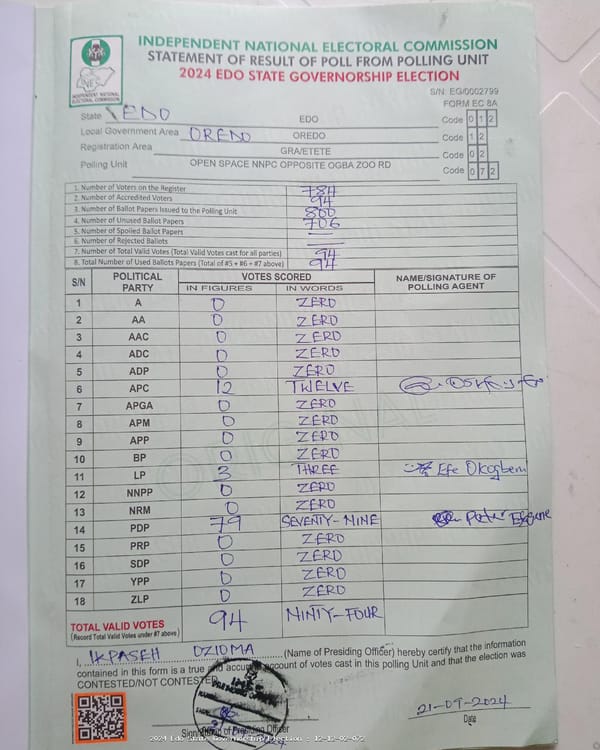 INDEPENDENT NATIONAL ELECTORAL COMMISSION
STATEMENT OF RESULT OF POLL FROM POLLING UNIT
2024 EDO STATE GOVERNORSHIP ELECTION
INDEPENDENT NATIONAL ELECTORAL COMMISSION
S/N: EG/0002799
FORM EC 8A
State EDO EDO Code 0 1 2
Local Government Area OREDO OREDO Code 1 2
Registration Area GRA/ETETE Code 0 2
Polling Unit OPEN SPACE NNPC OPPOSITE OGBA ZOO RD Code 0 7 2
1. Number of Voters on the Register 784
2. Number of Accredited Voters 94
3. Number of Ballot Papers Issued to the Polling Unit 800
4. Number of Unused Ballot Papers 706
5. Number of Spoiled Ballot Papers —
6. Number of Rejected Ballots —
7. Number of Total Valid Votes (Total Valid Votes cast for all parties) 94
8. Total Number of Used Ballots Papers (Total of #5 + #6 + #7 above) 94
S/N POLITICAL PARTY VOTES SCORED NAME/SIGNATURE OF POLLING AGENT
IN FIGURES IN WORDS
1 A 0 ZERO
2 AA 0 ZERO
3 AAC 0 ZERO
4 ADC 0 ZERO
5 ADP 0 ZERO
6 APC 12 TWELVE
7 APGA 0 ZERO
8 APM 0 ZERO
9 APP 0 ZERO
10 BP 0 ZERO
11 LP 3 THREE Efe Okogbeni
12 NNPP 0 ZERO
13 NRM 0 ZERO
14 PDP 79 SEVENTY-NINE Peter
15 PRP 0 ZERO
16 SDP 0 ZERO
17 YPP 0 ZERO
18 ZLP 0 ZERO
TOTAL VALID VOTES 94 NINTY-FOUR
(Record Total Valid Votes under #7 above)
ORIGINAL
I, IKPASEH OZIOMA (Name of Presiding Officer) hereby certify that the information
contained in this form is a true and accurate account of votes cast in this polling Unit and that the election was
CONTESTED/NOT CONTESTED
21-09-2024
Signature of Presiding Officer Date
2024 Edo State Governorship Election - 12-12-02-072